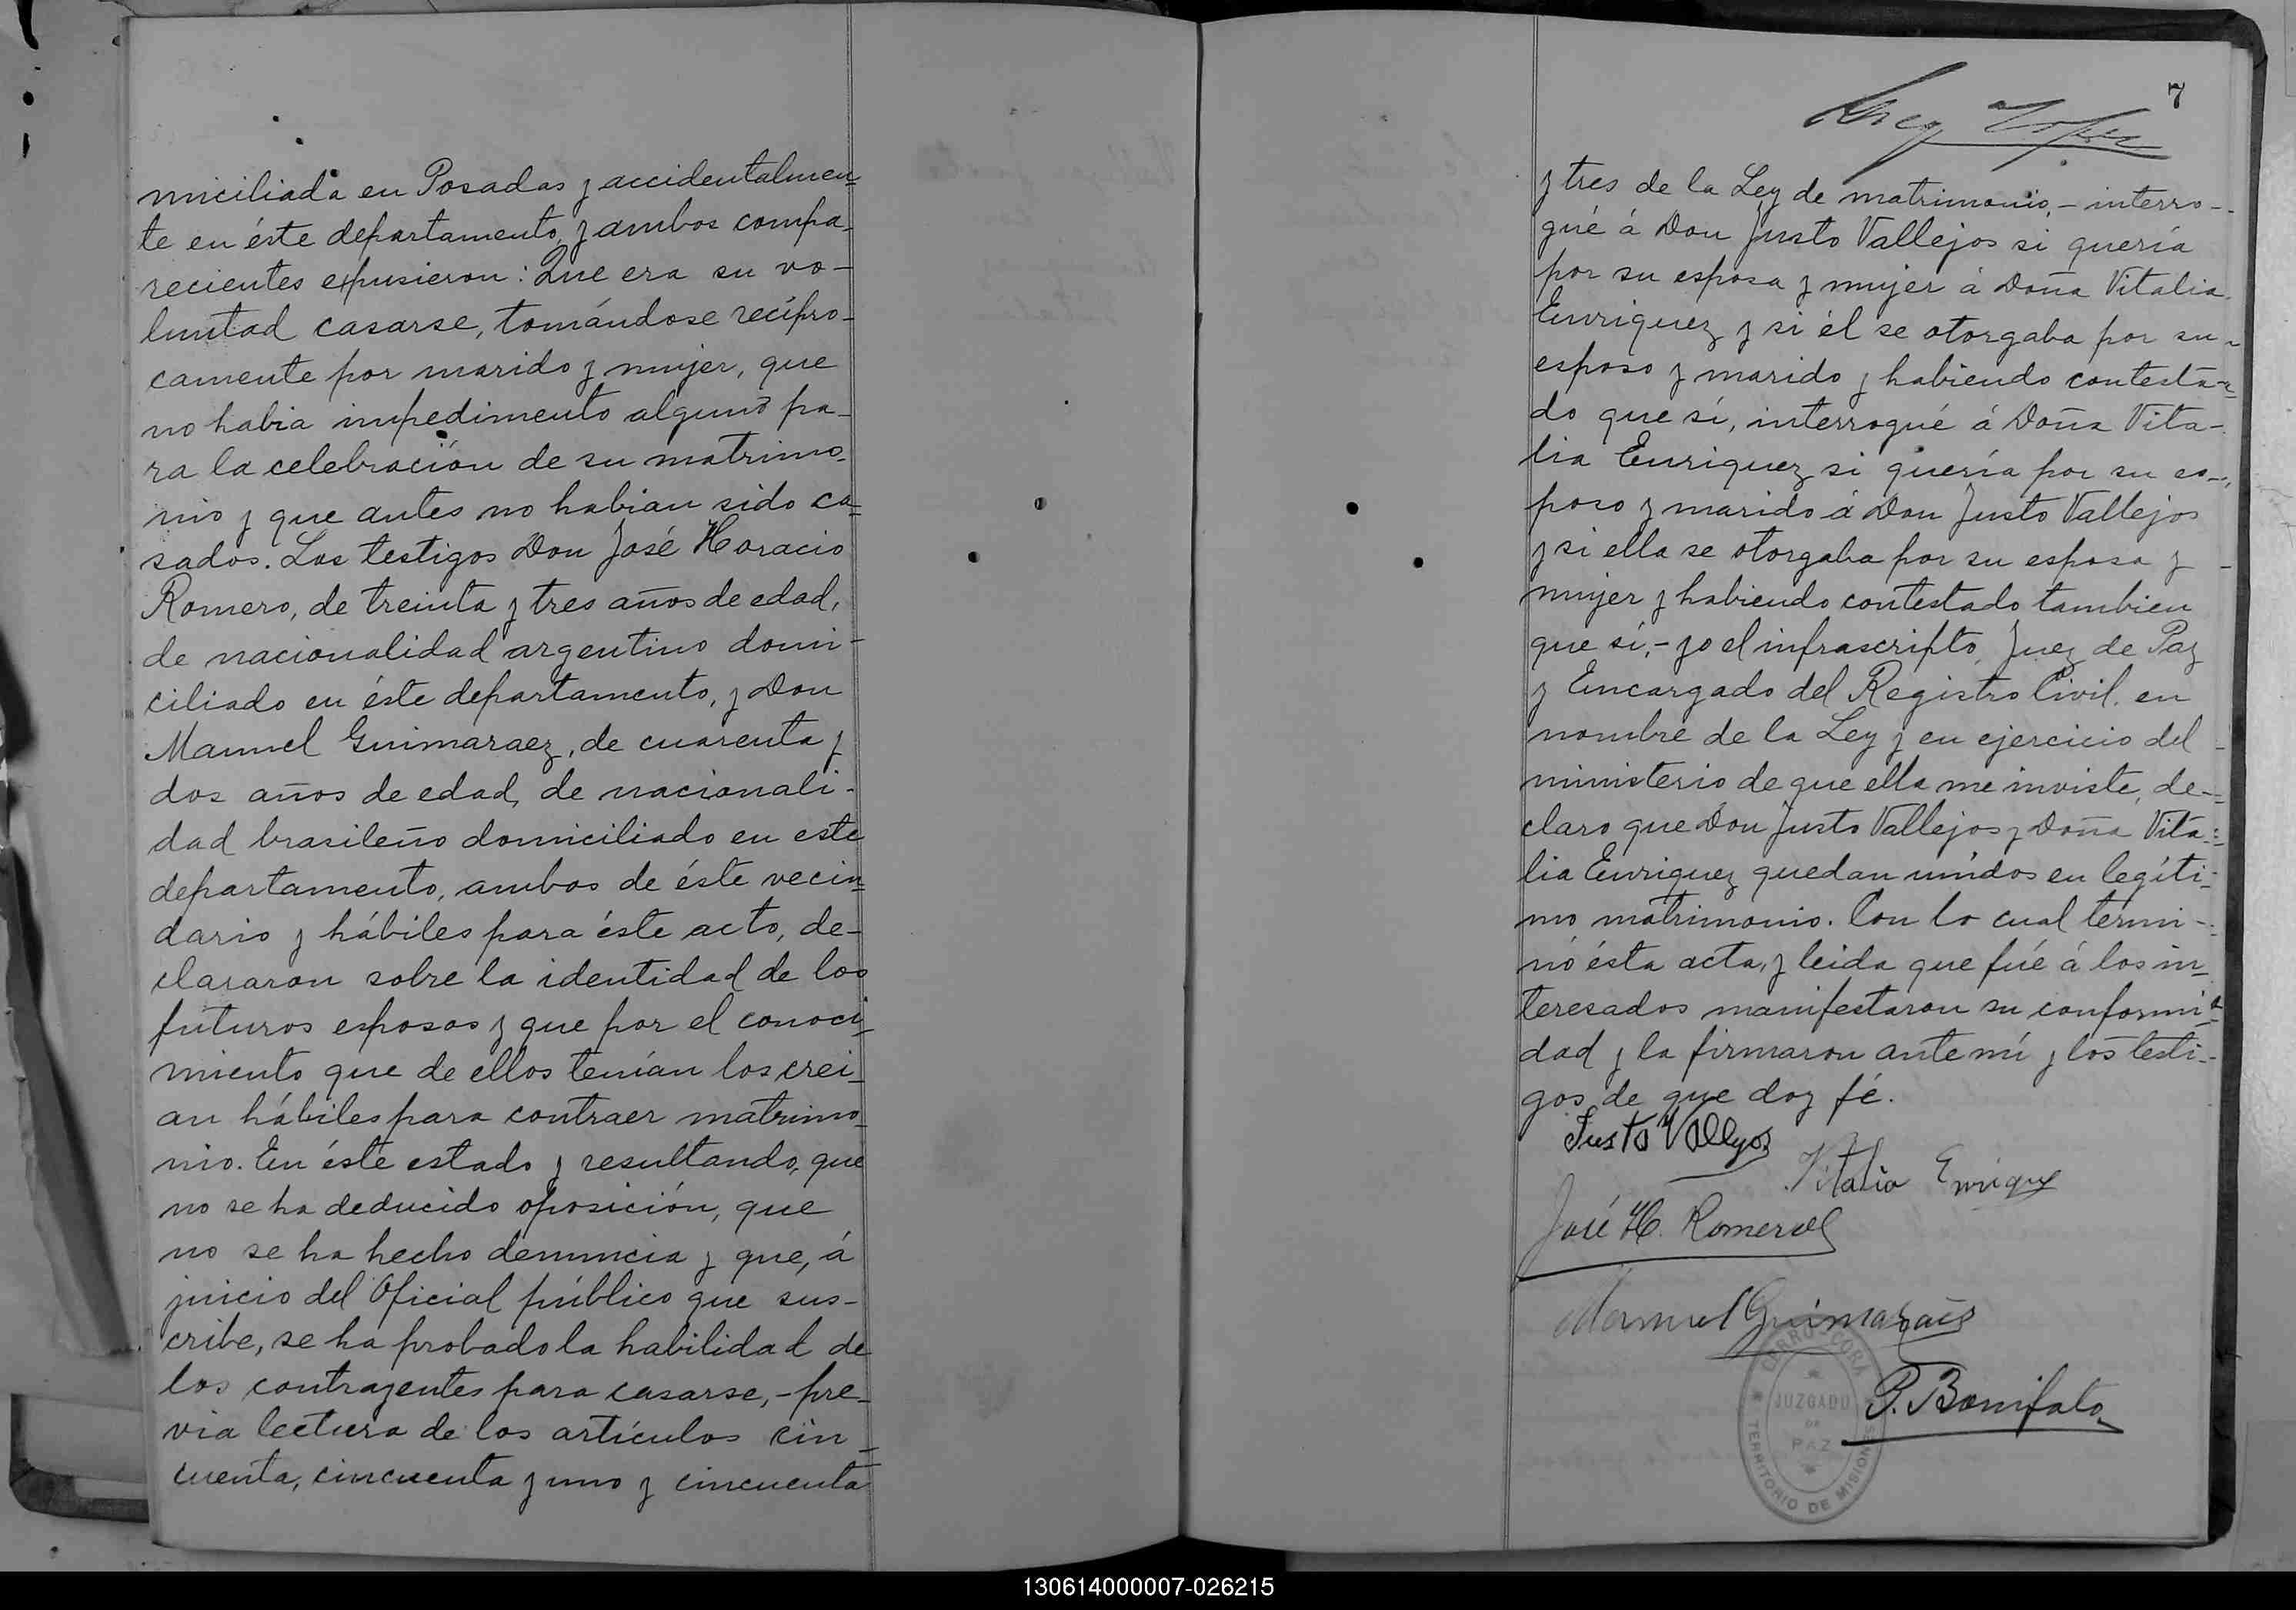 miciliada en Posadas y accidentalmen-
te en éste departamento, y ambos compa-
recientes expusieron: Que era su vo-
luntad casarse, tomándose recípro-
camente por marido y mujer, que
no habia impedimento alguno pa-
ra la celebración de su matrimo-
nio y que antes no habian sido ca-
sados. Los testigos Don José Horacio
Romero, de treinta y tres años de edad,
de nacionalidad argentino domi-
ciliado en éste departamento, y Don
Manuel Guimaraez, de cuarenta y
dos años de edad, de nacionali-
dad brasileño domiciliado en este
departamento, ambos de éste vecin-
dario y hábiles para éste acto, de-
clararon sobre la identidad de los
futuros esposos y que por el conoci-
miento que de ellos tenían los crei-
an hábiles para contraer matrimo-
nio. En éste estado y resultando, que
no se ha deducido oposición, que
no se ha hecho denuncia y que, á
juicio del Oficial público que sus-
cribe, se ha probado la habilidad de
los contrayentes para casarse,- pre-
via lectura de los artículos cin-
cuenta, cincuenta y uno y cincuenta
7
y tres de la Ley de matrimonio,- interro-
gué á Don Justo Vallejos si quería
por su esposa y mujer á Doña Vitalia
Enriquez y si él se otorgaba por su
esposo y marido y habiendo contesta-
do que sí, interrogué á Doña Vita-
lia Enriquez si quería por su es-
poso y marido á Don Justo Vallejos
y si ella se otorgaba por su esposa y
mujer y habiendo contestado tambien
que sí,- yo el infrascripto, Juez de Paz
y Encargado del Registro Civil, en
nombre de la Ley y en ejercicio del
ministerio de que ella me inviste, de-
claro que Don Justo Vallejos y Doña Vita-
lia Enriquez quedan unidos en legíti-
mo matrimonio. Con lo cual termi-
nó ésta acta, y leida que fué á los in-
teresados manifestaron su conformi-
dad y la firmaron ante mí y los testi-
gos de que doy fé.
Justo Vallejos
Vitalia Enriquez
José H. Romero
Manuel Guimaraës
P. Bonifato
CERRO CORA
JUZGADO
DE
PAZ
TERRITORIO DE MISIONES
130614000007-026215